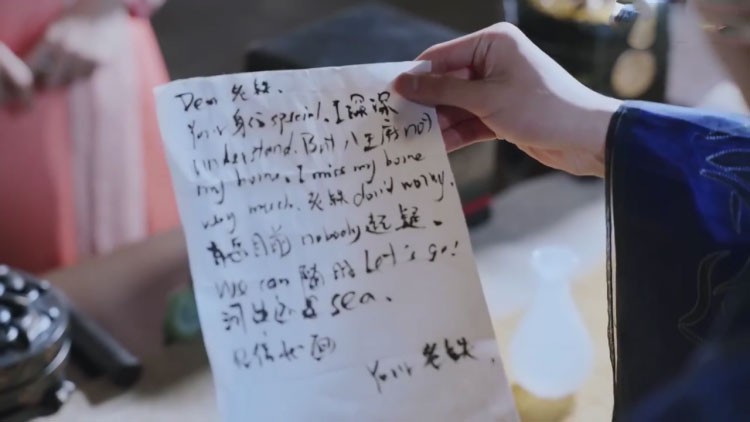 Dear 老铁、
Your 身份 special、I 深深
understand. But 八王府 not
my home、I miss my home
very much、老铁 don't worry、
目前 nobody 起疑、
We can 随时 Let's go!
sea、
见信如面
Your 老铁、